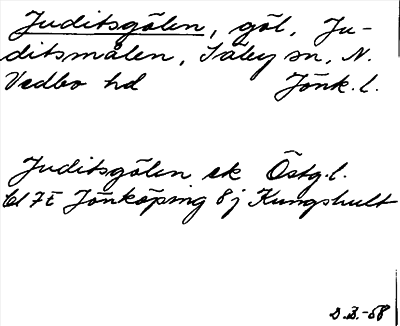 Juditsgölen, göl, Ju-
ditsmålen, Säby sn, N.
Vedbo hd Jönk. l.
Juditsgölen ek Östg. l.
bl 7E Jönköping 8j Kungshult
S.B.-58